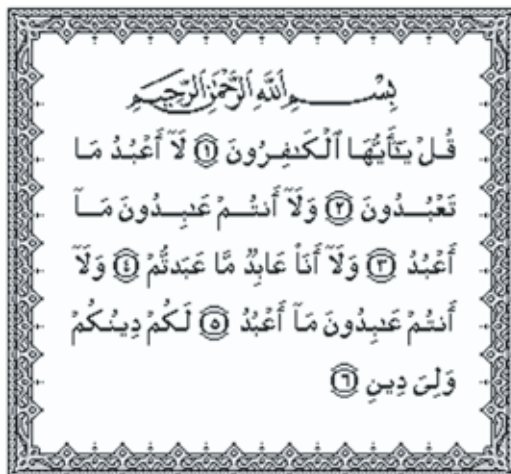 بِسْمِ ٱللَّهِ ٱلرَّحْمَٰنِ ٱلرَّحِيمِ
قُلْ يَـٰٓأَيُّهَا ٱلْكَـٰفِرُونَ ١ لَآ أَعْبُدُ مَا
تَعْبُدُونَ ٢ وَلَآ أَنتُمْ عَـٰبِدُونَ مَآ
أَعْبُدُ ٣ وَلَآ أَنَا۠ عَابِدٌ مَّا عَبَدتُّمْ ٤ وَلَآ
أَنتُمْ عَـٰبِدُونَ مَآ أَعْبُدُ ٥ لَكُمْ دِينُكُمْ
وَلِىَ دِينِ ٦